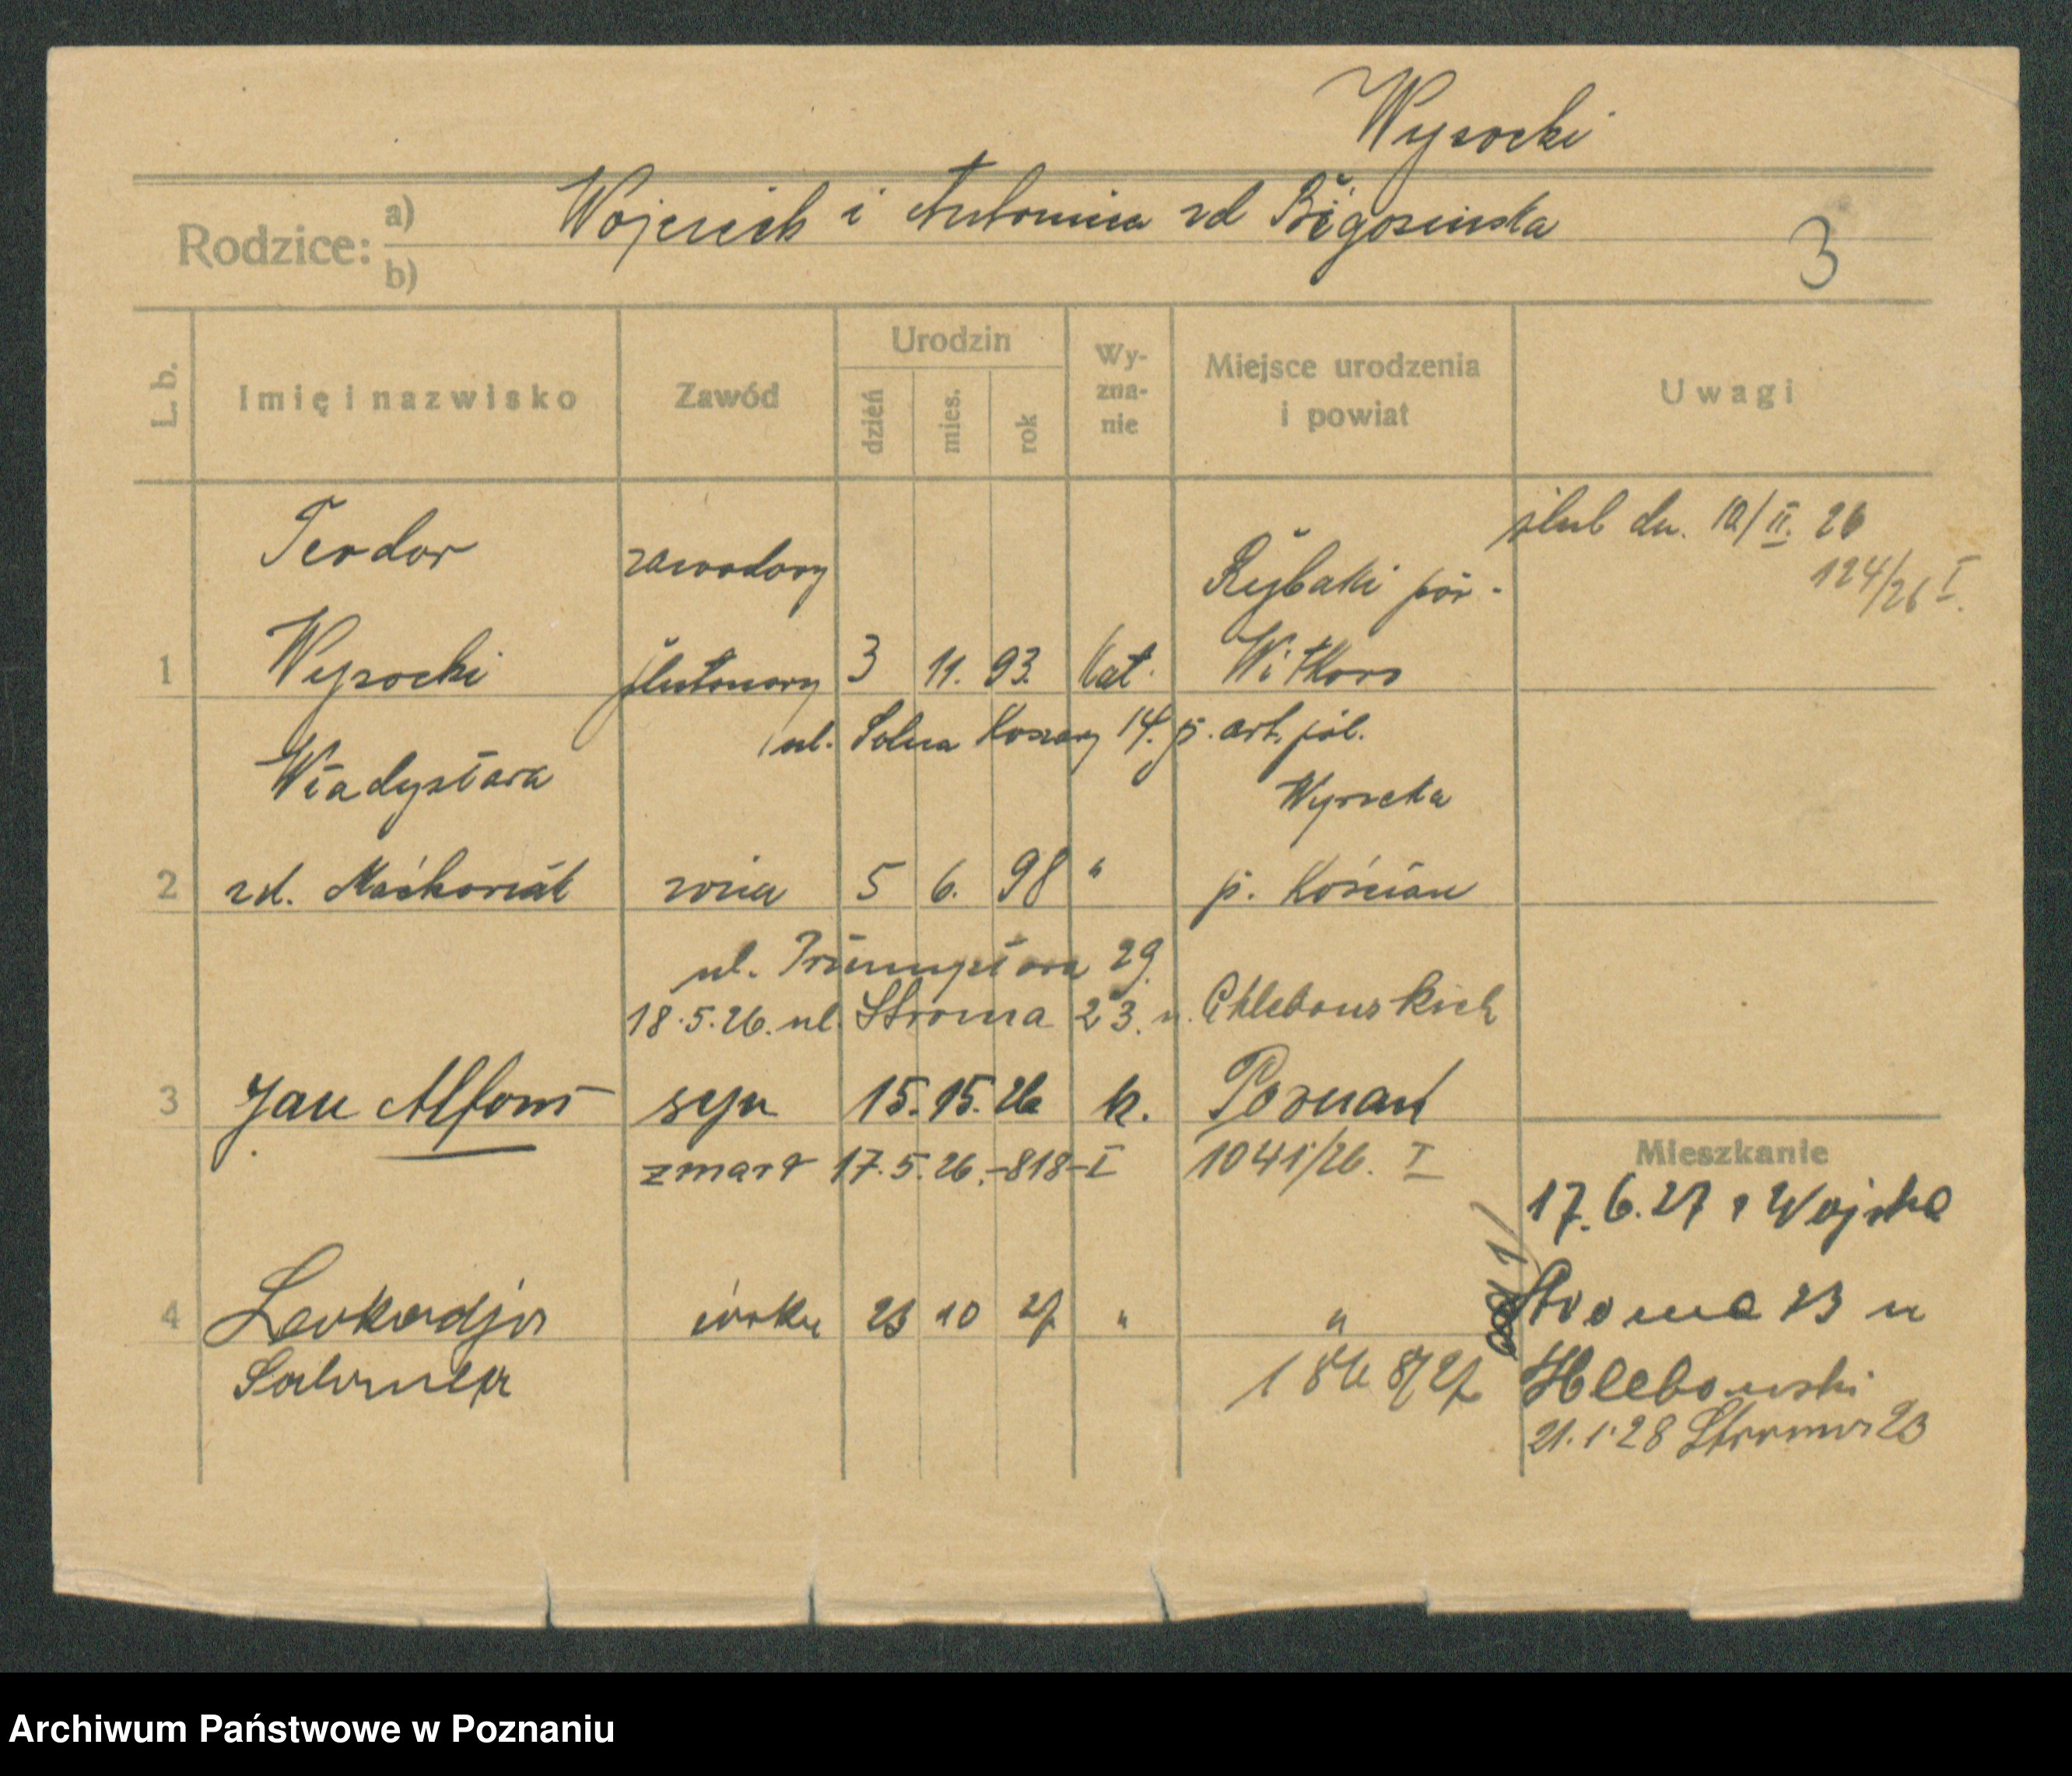 Wysocki
Rodzice: a) b) Wojciech i Antonina zd
3
L. b.
Imię i nazwisko
Zawód
Urodzin
dzień
mies.
rok
Wy-
zna-
nie
Miejsce urodzenia
i powiat
Uwagi
ślub dn. 10/II. 26
124/26 I.
Teodor zawodowy Rybaki pow.
1 Wysocki plutonowy 3 11. 93. kat. Witkowo
ul. Solna Koszary 14. p. art. pol.
Władysława Wysocka
2 zd. żona 5 6. 98 " p. Kościan
ul. 29.
18.5.26. ul. Stroma 23. u. Chlebowskich
3 Jan Alfons syn 15. 15. 26 k. Poznań
zmarł 17.5.26.-818-I 1041/26. I
Mieszkanie
17.6.27 z Wojska
4 Leokadja córka 23 10 27 " " Stroma 23 u
Salomeja Hlebowski
21.1.28 Stroma 23
Archiwum Państwowe w Poznaniu